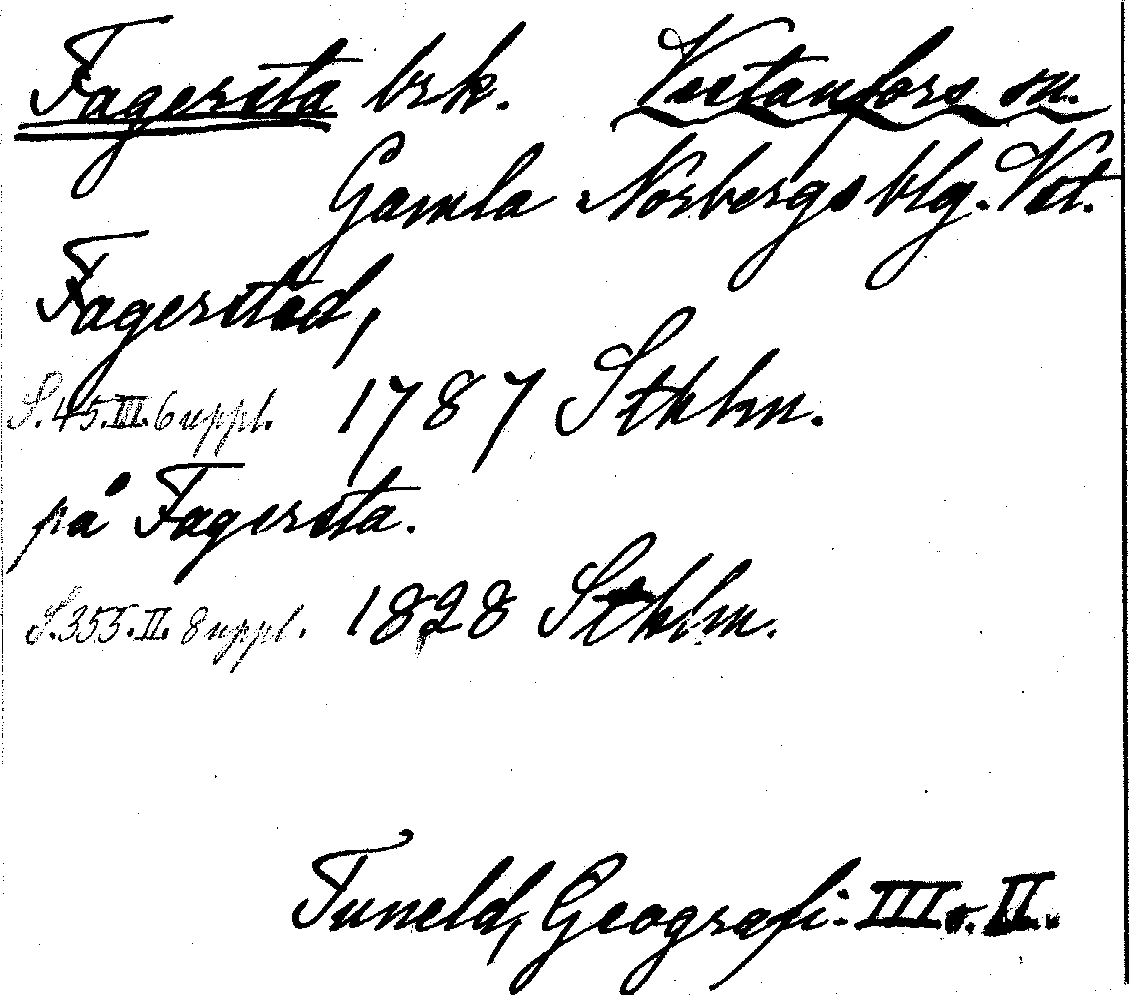 Fagersta brk. Västanfors sn.
Gamla Norbergs blg. Vst.
Fagerstad,
S. 45. III. 6 uppl. 1787 Sthlm.
på Fagersta.
S. 355. II. 8 uppl. 1828 Sthlm.
Tuneld, Geografi. III. o. II.